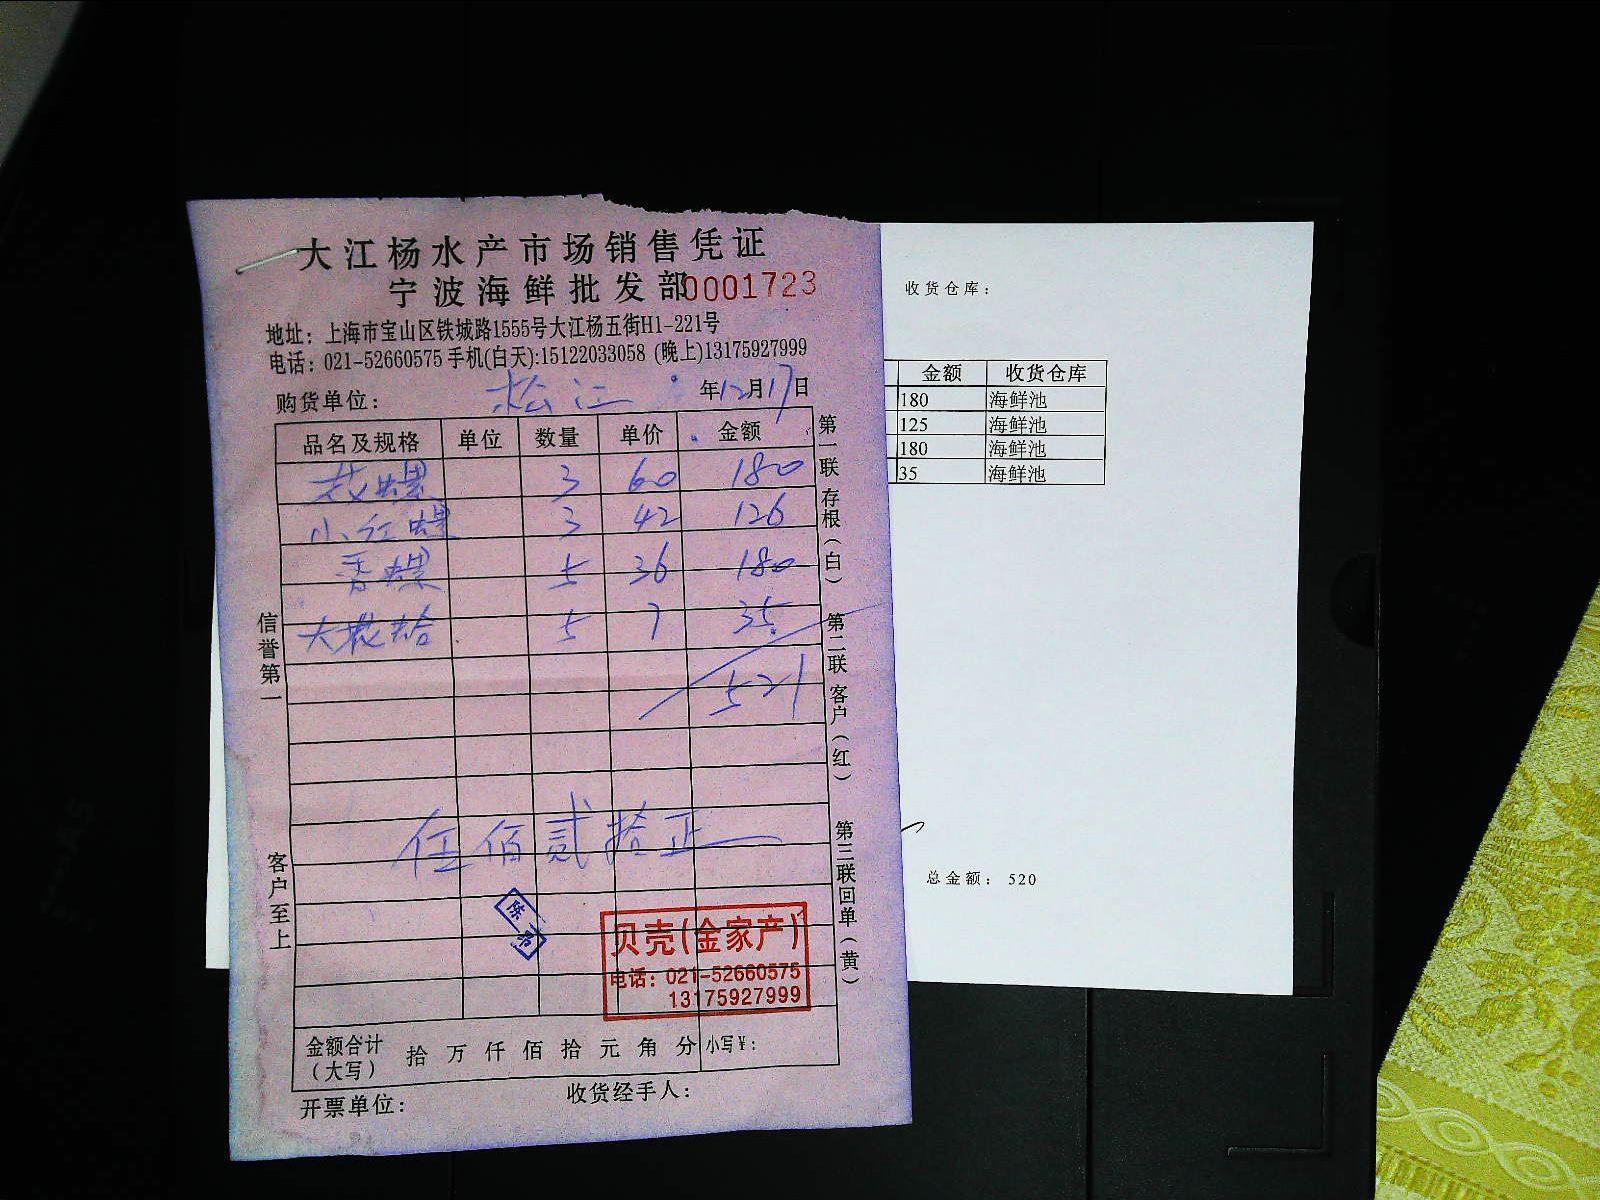 大江杨水产市场销售凭证
宁波海鲜批发部 0001723
地址：上海市宝山区铁城路1555号大江杨五街H1-221号
电话：021-52660575 手机(白天):15122033058 (晚上)13175927999
购货单位： 松江 年12月17日
品名及规格 单位 数量 单价 金额
3 60 180
小红螺 3 42 126
香螺 5 36 180
大花蛤 5 7 35
521
伍佰贰拾正
陈
贝壳(金家产)
电话：021-52660575
13175927999
金额合计（大写） 拾 万 仟 佰 拾 元 角 分 小写￥：
开票单位： 收货经手人：
信誉第一
客户至上
第一联存根（白）
第二联客户（红）
第三联回单（黄）
收货仓库：
金额 收货仓库
180 海鲜池
125 海鲜池
180 海鲜池
35 海鲜池
总金额： 520